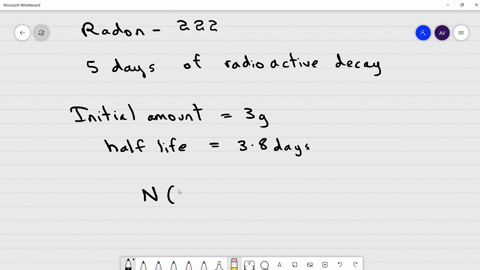 Microsoft Whiteboard
AV
Radon - 222
5 days of radioactive decay
Initial amount = 3g
half life = 3.8 days
N (